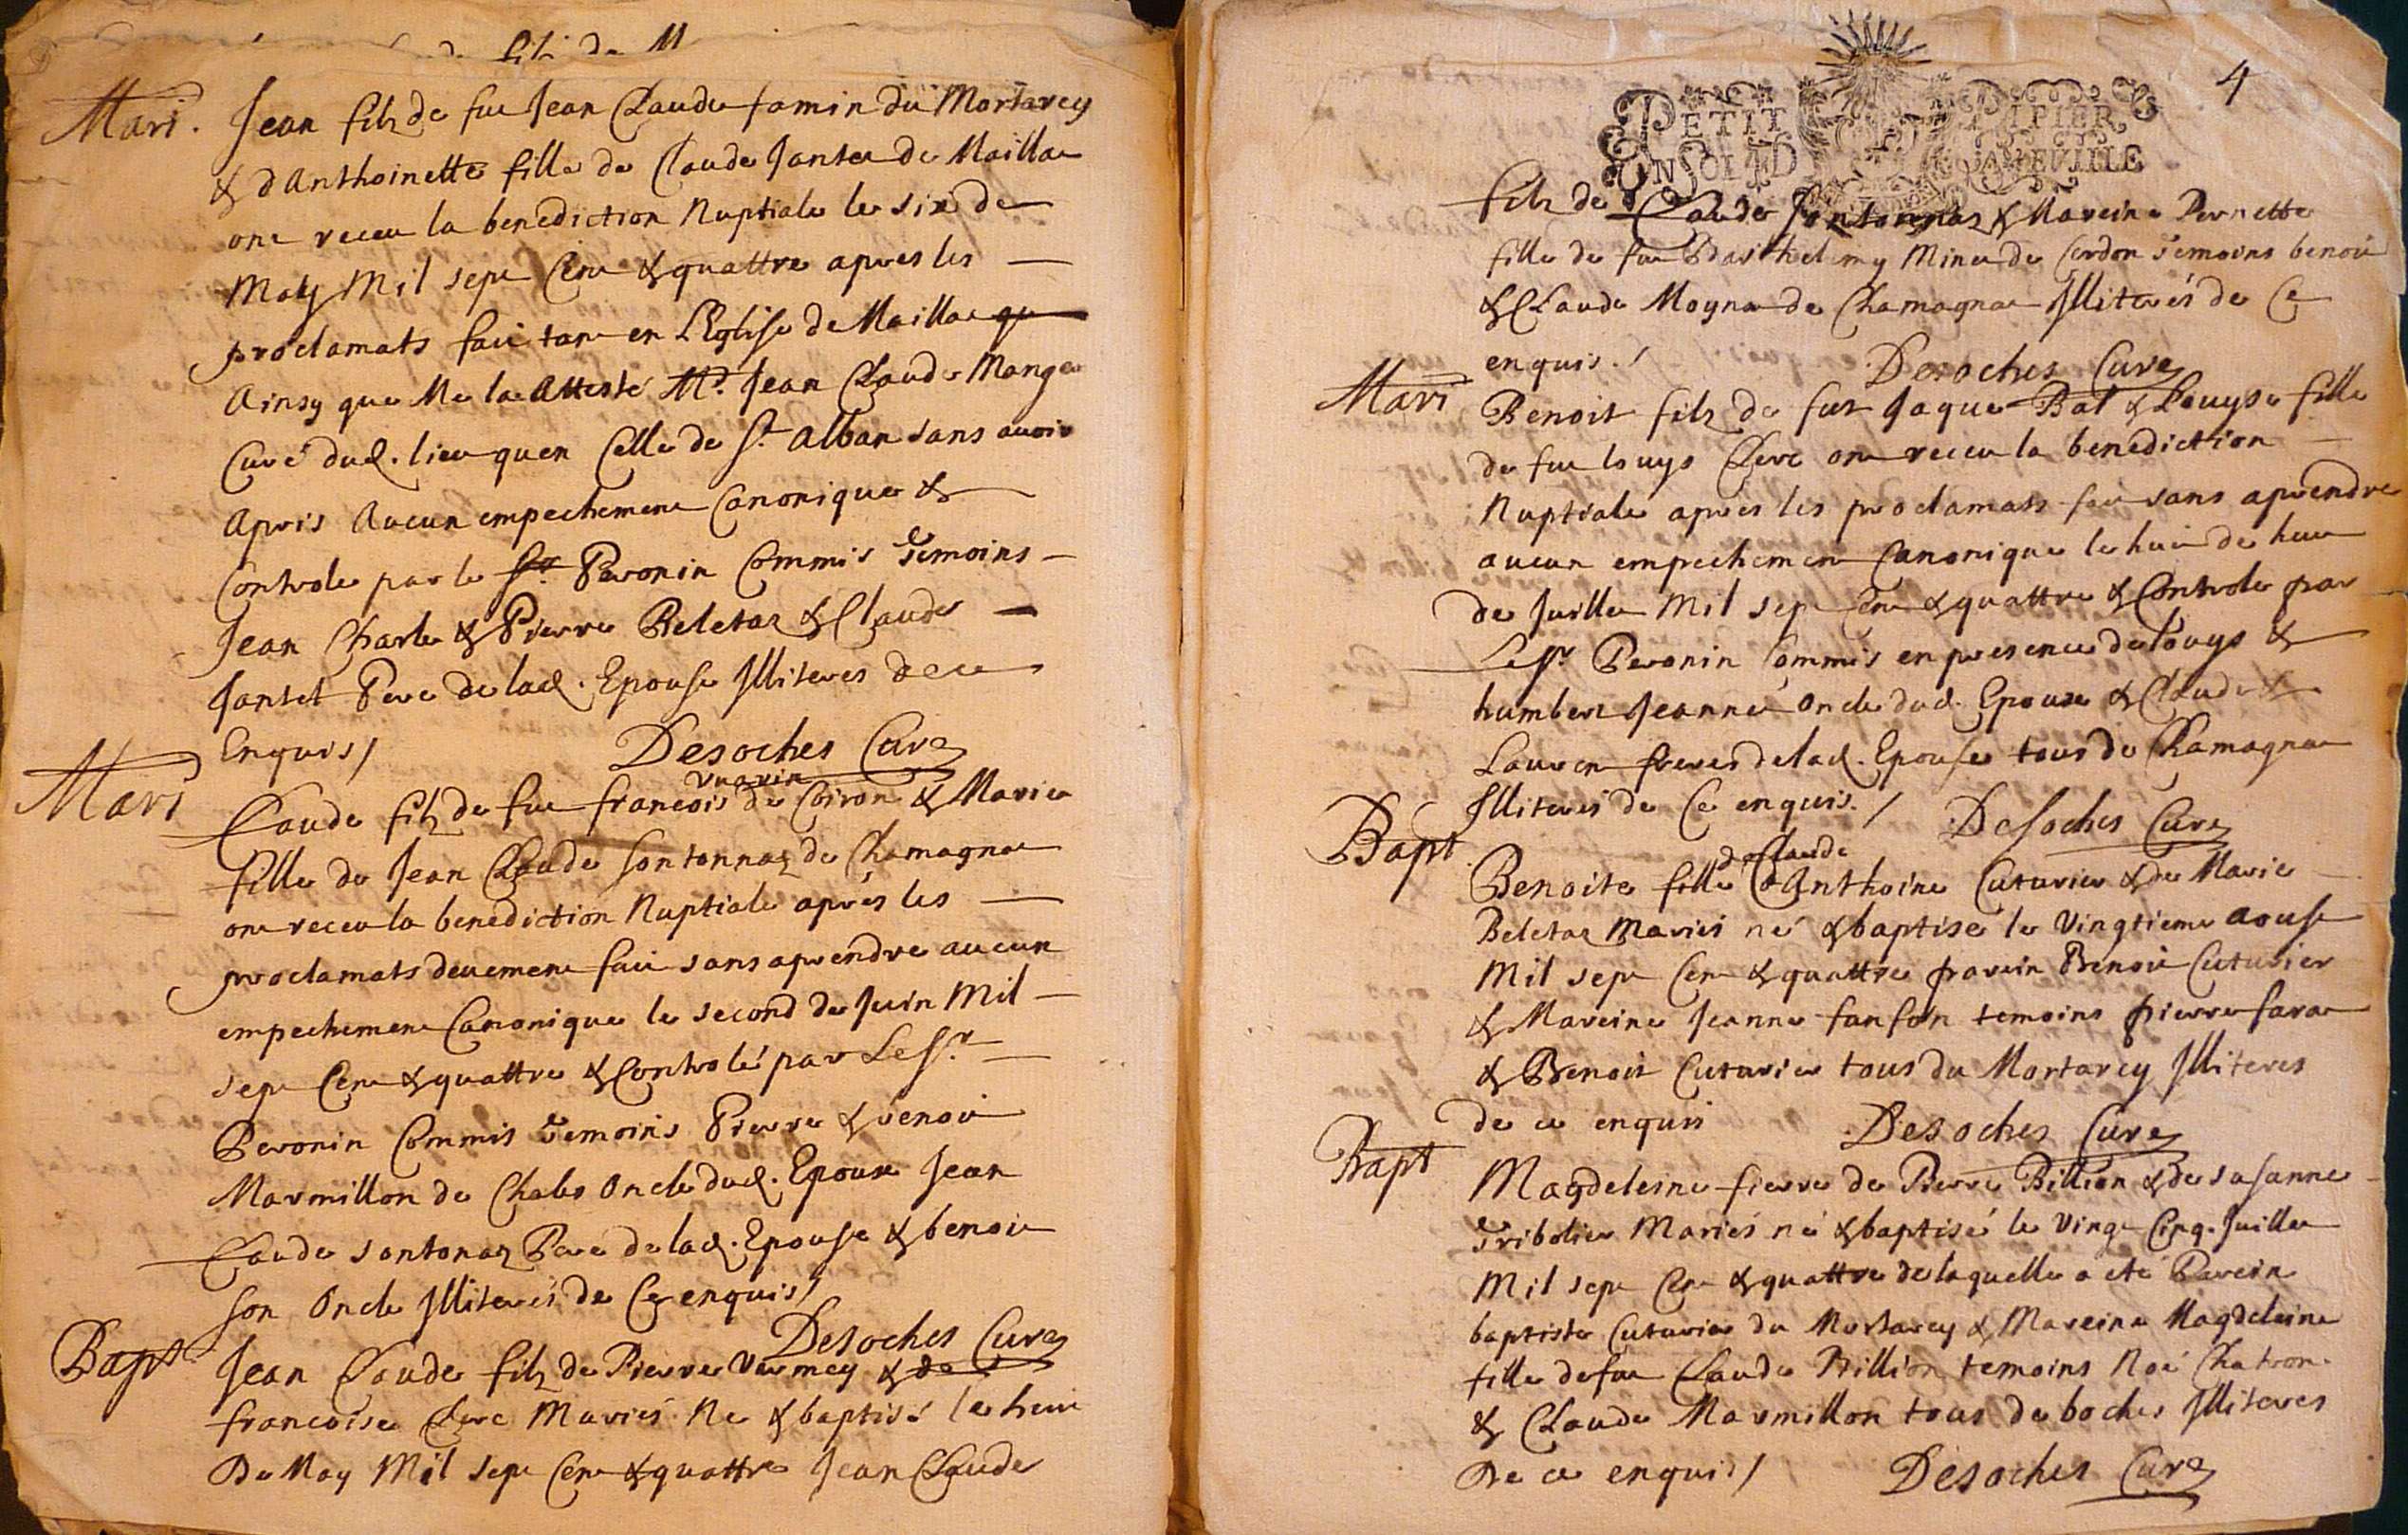 filz de M
Mari. Jean filz de fue Jean Claude famin du Mortarey
& dAnthoinette fille de Claude Jantet de Maillac
ont receu la benediction Nuptiale le six de
May Mil sept Cent & quattre apres les
proclamats fait tant en LEglise de Maillac
Ainsy que Me la Attesté Mr. Jean Claude Monge
Curé dud. lieu quen Celle de St. alban sans avoir
Apris Aucun empechement Canonique &
Controle par le Sr. Peronin Commis Temoins
Jean Charle & Pierre Beletaz & Claude
Jantet Pere de lad. Epouse Illiteres de ce
Enquis /
Desoches Cure
Mari Claude filz de fue francois vuarin de Coiron & Marie
fille de Jean Claude Sontonnaz de Chamagnac
ont receu la benediction Nuptiale aprés les
proclamats deuement fait sans aprendre aucun
empechement Canonique le second de Juin Mil
sept Cent & quattre & Controlé par Le Sr.
Peronin Commis Temoins Pierre & benoit
Marmillon de Chales Oncle dud. Epoux Jean
Claude Sontonaz Pere de lad. Epouse & benoit
son Oncle Illiterés de Ce enquis /
Desoches Cure
Bapt Jean Claude filz de Pierre Vermey & de
francoise Clerc Mariés Ne & baptisé le huit
De May Mil sept Cent & quattre Jean Claude
4
PETIT PAPIER
UN SOL 4D LA FEUILLE
filz de Claude Sontonnaz & Mareine Pernette
fille de fue Barthelemy Minet de Cerdon Temoins benoit
& Claude Moyna de Chamagnac Illiterés de Ce
enquis. /
Desoches Cure
Mari Benoit filz de fut Jaque Bal & Louyse fille
de fue louys Clerc ont receu la benediction
Nuptiale aprés les proclamats fait sans aprendre
aucun empechement Canonique le huit de huit
de Juillet Mil sept Cent & quattre & Controle par
Le Sr Peronin Commis en presence de louys &
humbert Jeannet Oncle dud. Epoux & Claude &
Laurent freres de lad. Epouse tous de Chamagnac
Illiterés de Ce enquis. /
Desoches Cure
Bapt Benoite fille de Claude Anthoine Cuturier & de Marie
Beletaz Mariés né & baptisé le Vingtieme aoust
Mil sept Cent & quattre parein Benoit Cuturier
& Mareine Jeanne fanfon temoins pierre farac
& Benoit Cuturier tous du Mortarey Illiteres
de ce enquis
Desoches Cure
Bapt Magdeleine fierre de Pierre Billion & de Susanne
Tribolier Mariés né & baptisé le Vingt Cinq. Juillet
Mil sept Cent & quattre de laquelle a eté Parein
baptiste Cuturier du Mortarey & Mareine Magdeleine
fille de fue Claude Billion temoins Noé Chatron
& Claude Marmillon tous de boches Illiteres
De ce enquis /
Desoches Cure